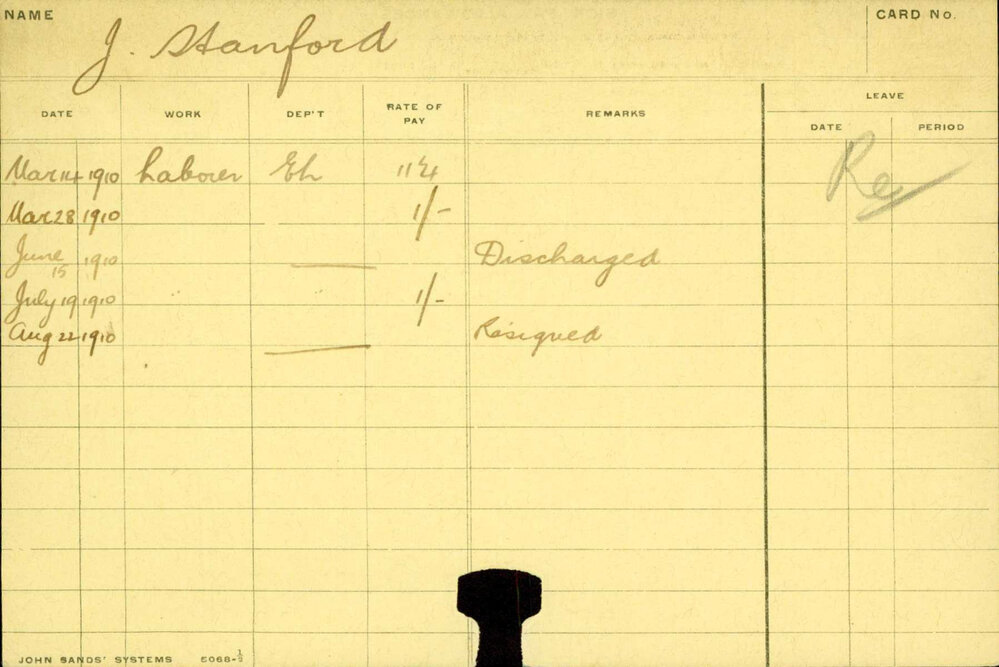 NAME J. Stanford CARD No.
LEAVE
DATE WORK DEP'T RATE OF PAY REMARKS DATE PERIOD
Mar 14 1910 Laborer Eh 11¼
Mar 28 1910 1/-
June 15 1910 Discharged
July 19 1910 1/-
Aug 22 1910 Resigned
Re
JOHN SANDS' SYSTEMS 5068-½